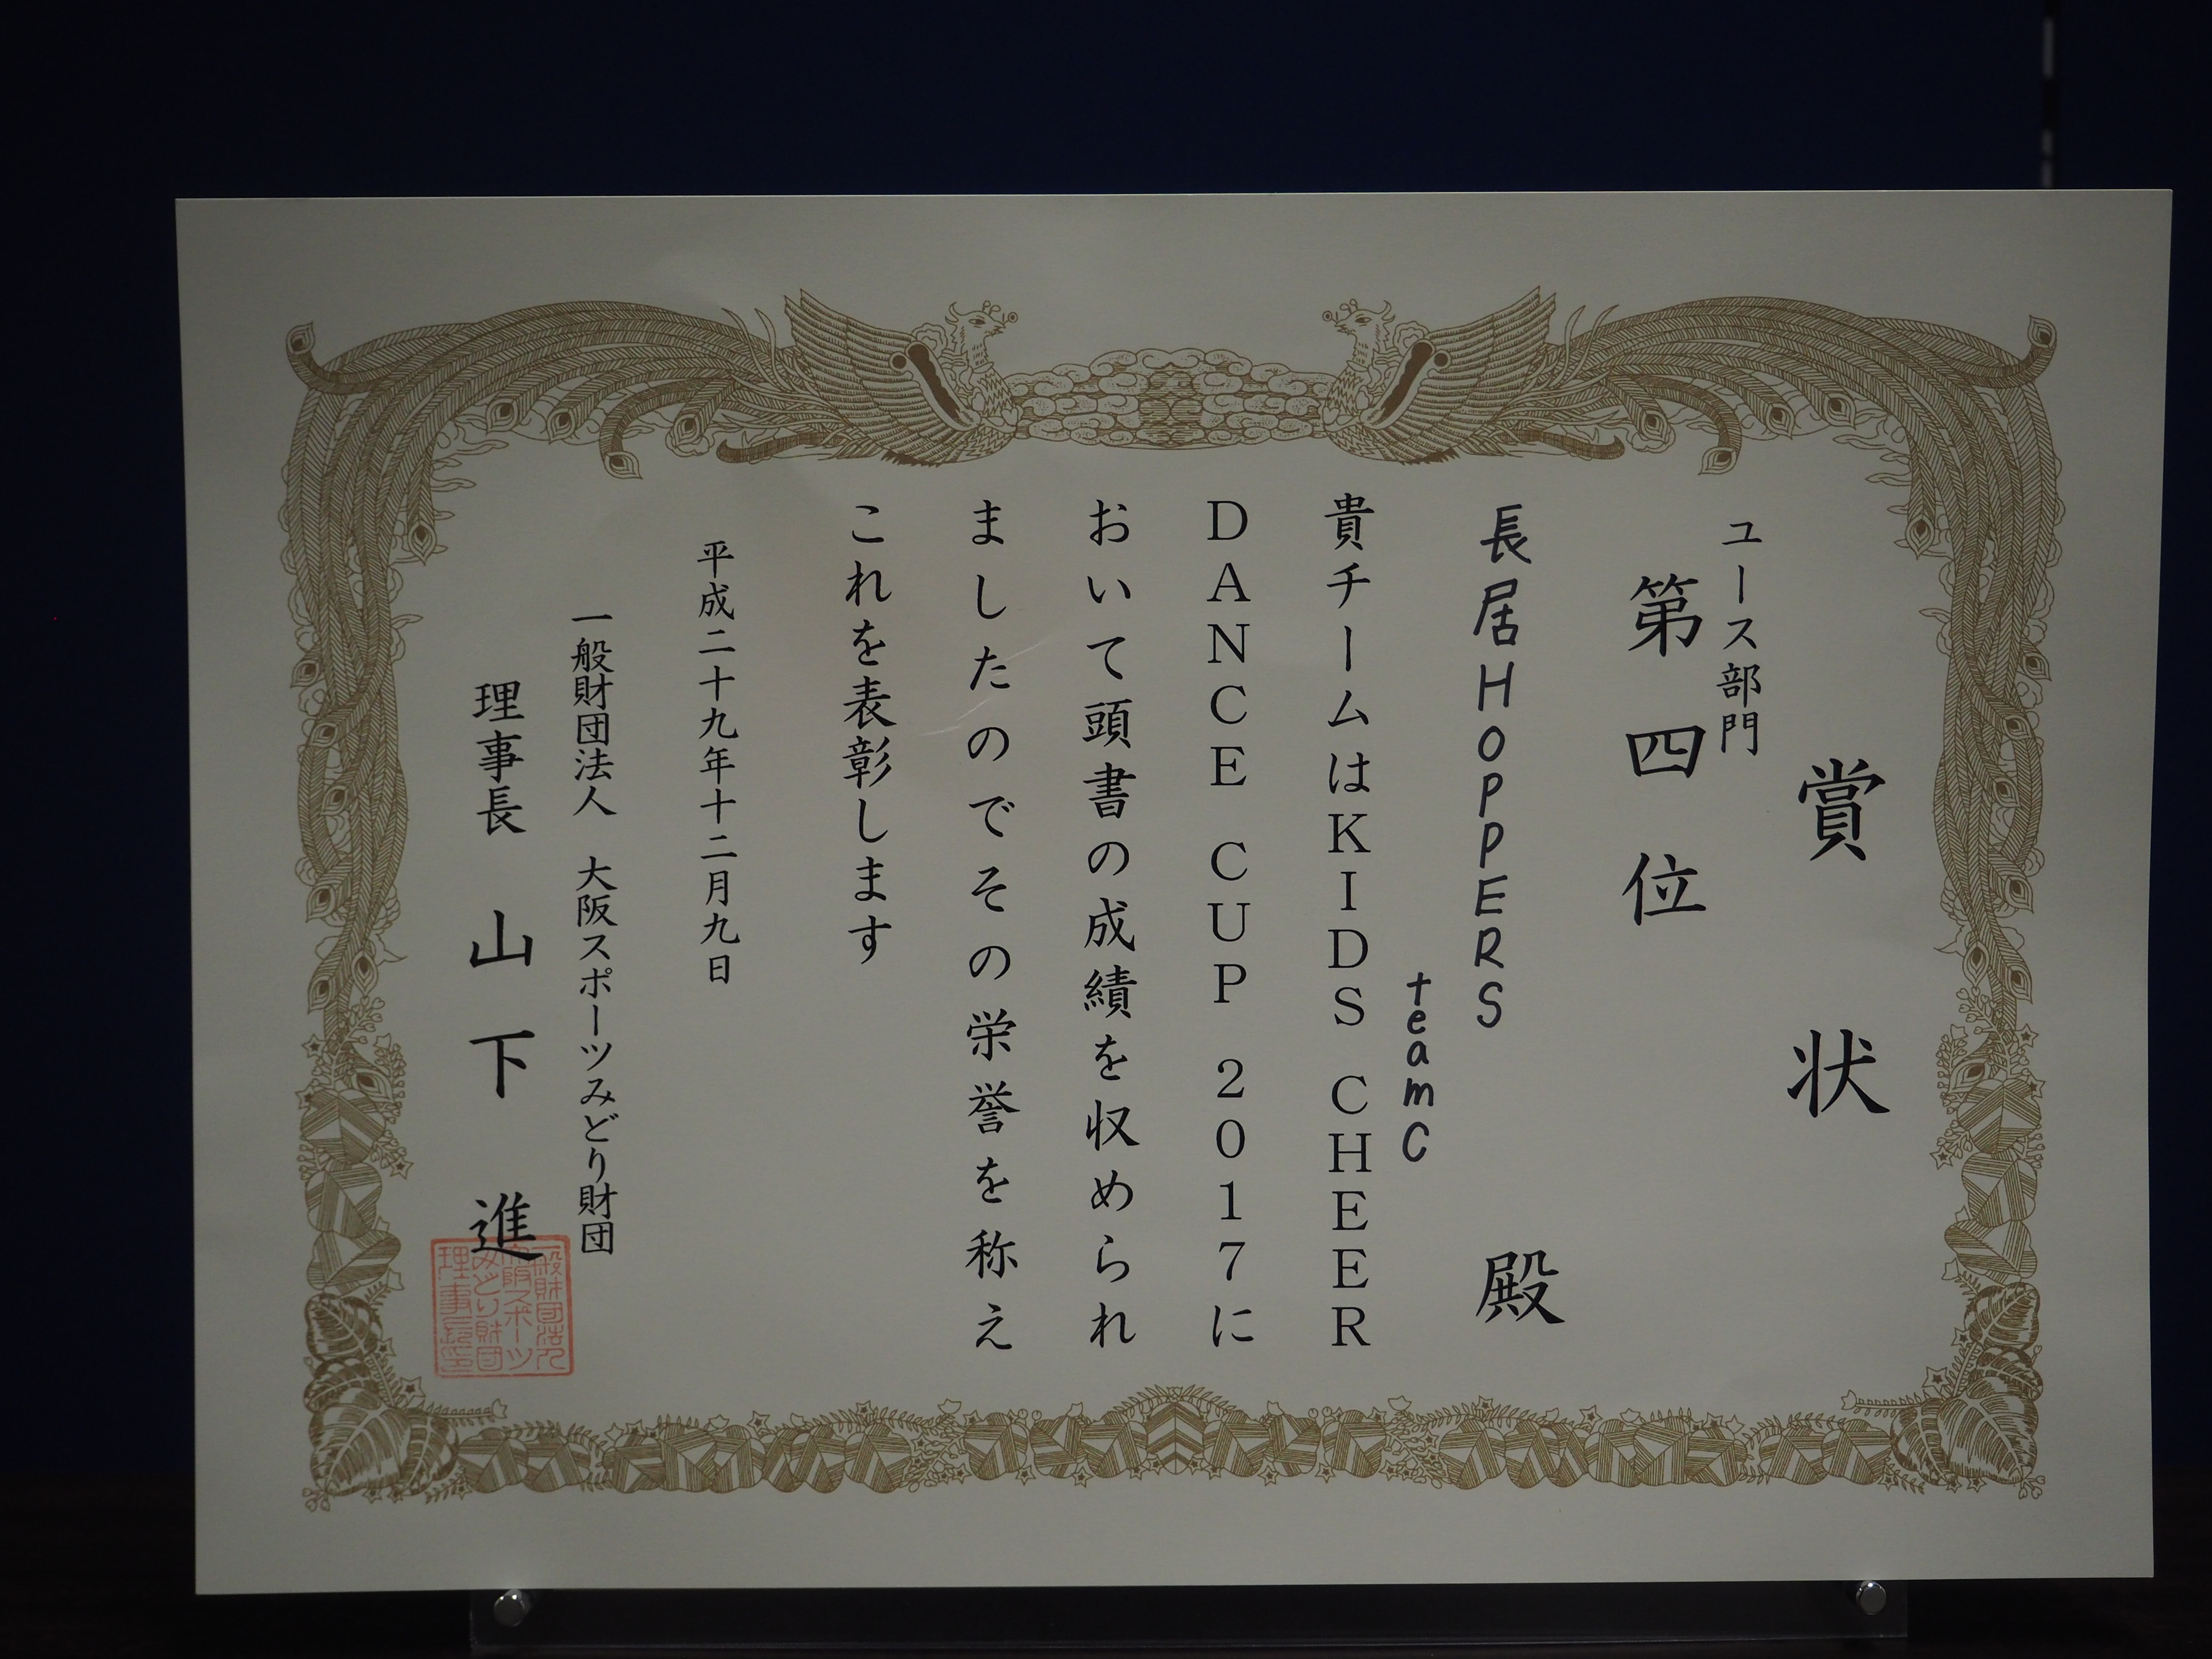 賞状
ユース部門
第四位
長居HOPPERS
teamC
殿
貴チームはKIDS CHEER
DANCE CUP 2017に
おいて頭書の成績を収められ
ましたのでその栄誉を称え
これを表彰します
平成二十九年十二月九日
一般財団法人 大阪スポーツみどり財団
理事長 山下 進
一般財団法人
大阪スポーツ
みどり財団
理事長印